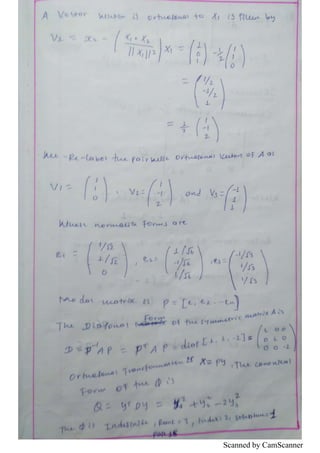 A Vector which is orthogonal to X₁ is then by
V₂ = x₂ - ( x₁ * x₂ / ||x₁||² ) x₁ = ( 1 0 1 ) - 1/2 ( 1 1 0 )
= ( 1/2 -1/2 1 )
= 1/2 ( 1 -1 2 )
We Re-label the pairwise orthogonal vectors of A as
V₁ = ( 1 1 0 ), V₂ = ( 1 -1 2 ) and V₃ = ( -1 1 1 )
Whose normalize forms are
e₁ = ( 1/√2 1/√2 0 ), e₂ = ( 1/√6 -1/√6 2/√6 ), e₃ = ( -1/√3 1/√3 1/√3 )
Modal matrix is P = [e₁ e₂ --- en]
The Diagonal Form of the symmetric matrix A is
D = P⁻¹ A P = Pᵀ A P = diag [2, 2, -2] = ( 2 0 0 0 2 0 0 0 -2 )
Orthogonal Transformation is X = PY, The canonical
Form of the Q is
Q = yᵀ D y = y₁² + y₂² - 2y₃²
The Q is Indefinite, Rank = 3, Index: 2,
Scanned by CamScanner